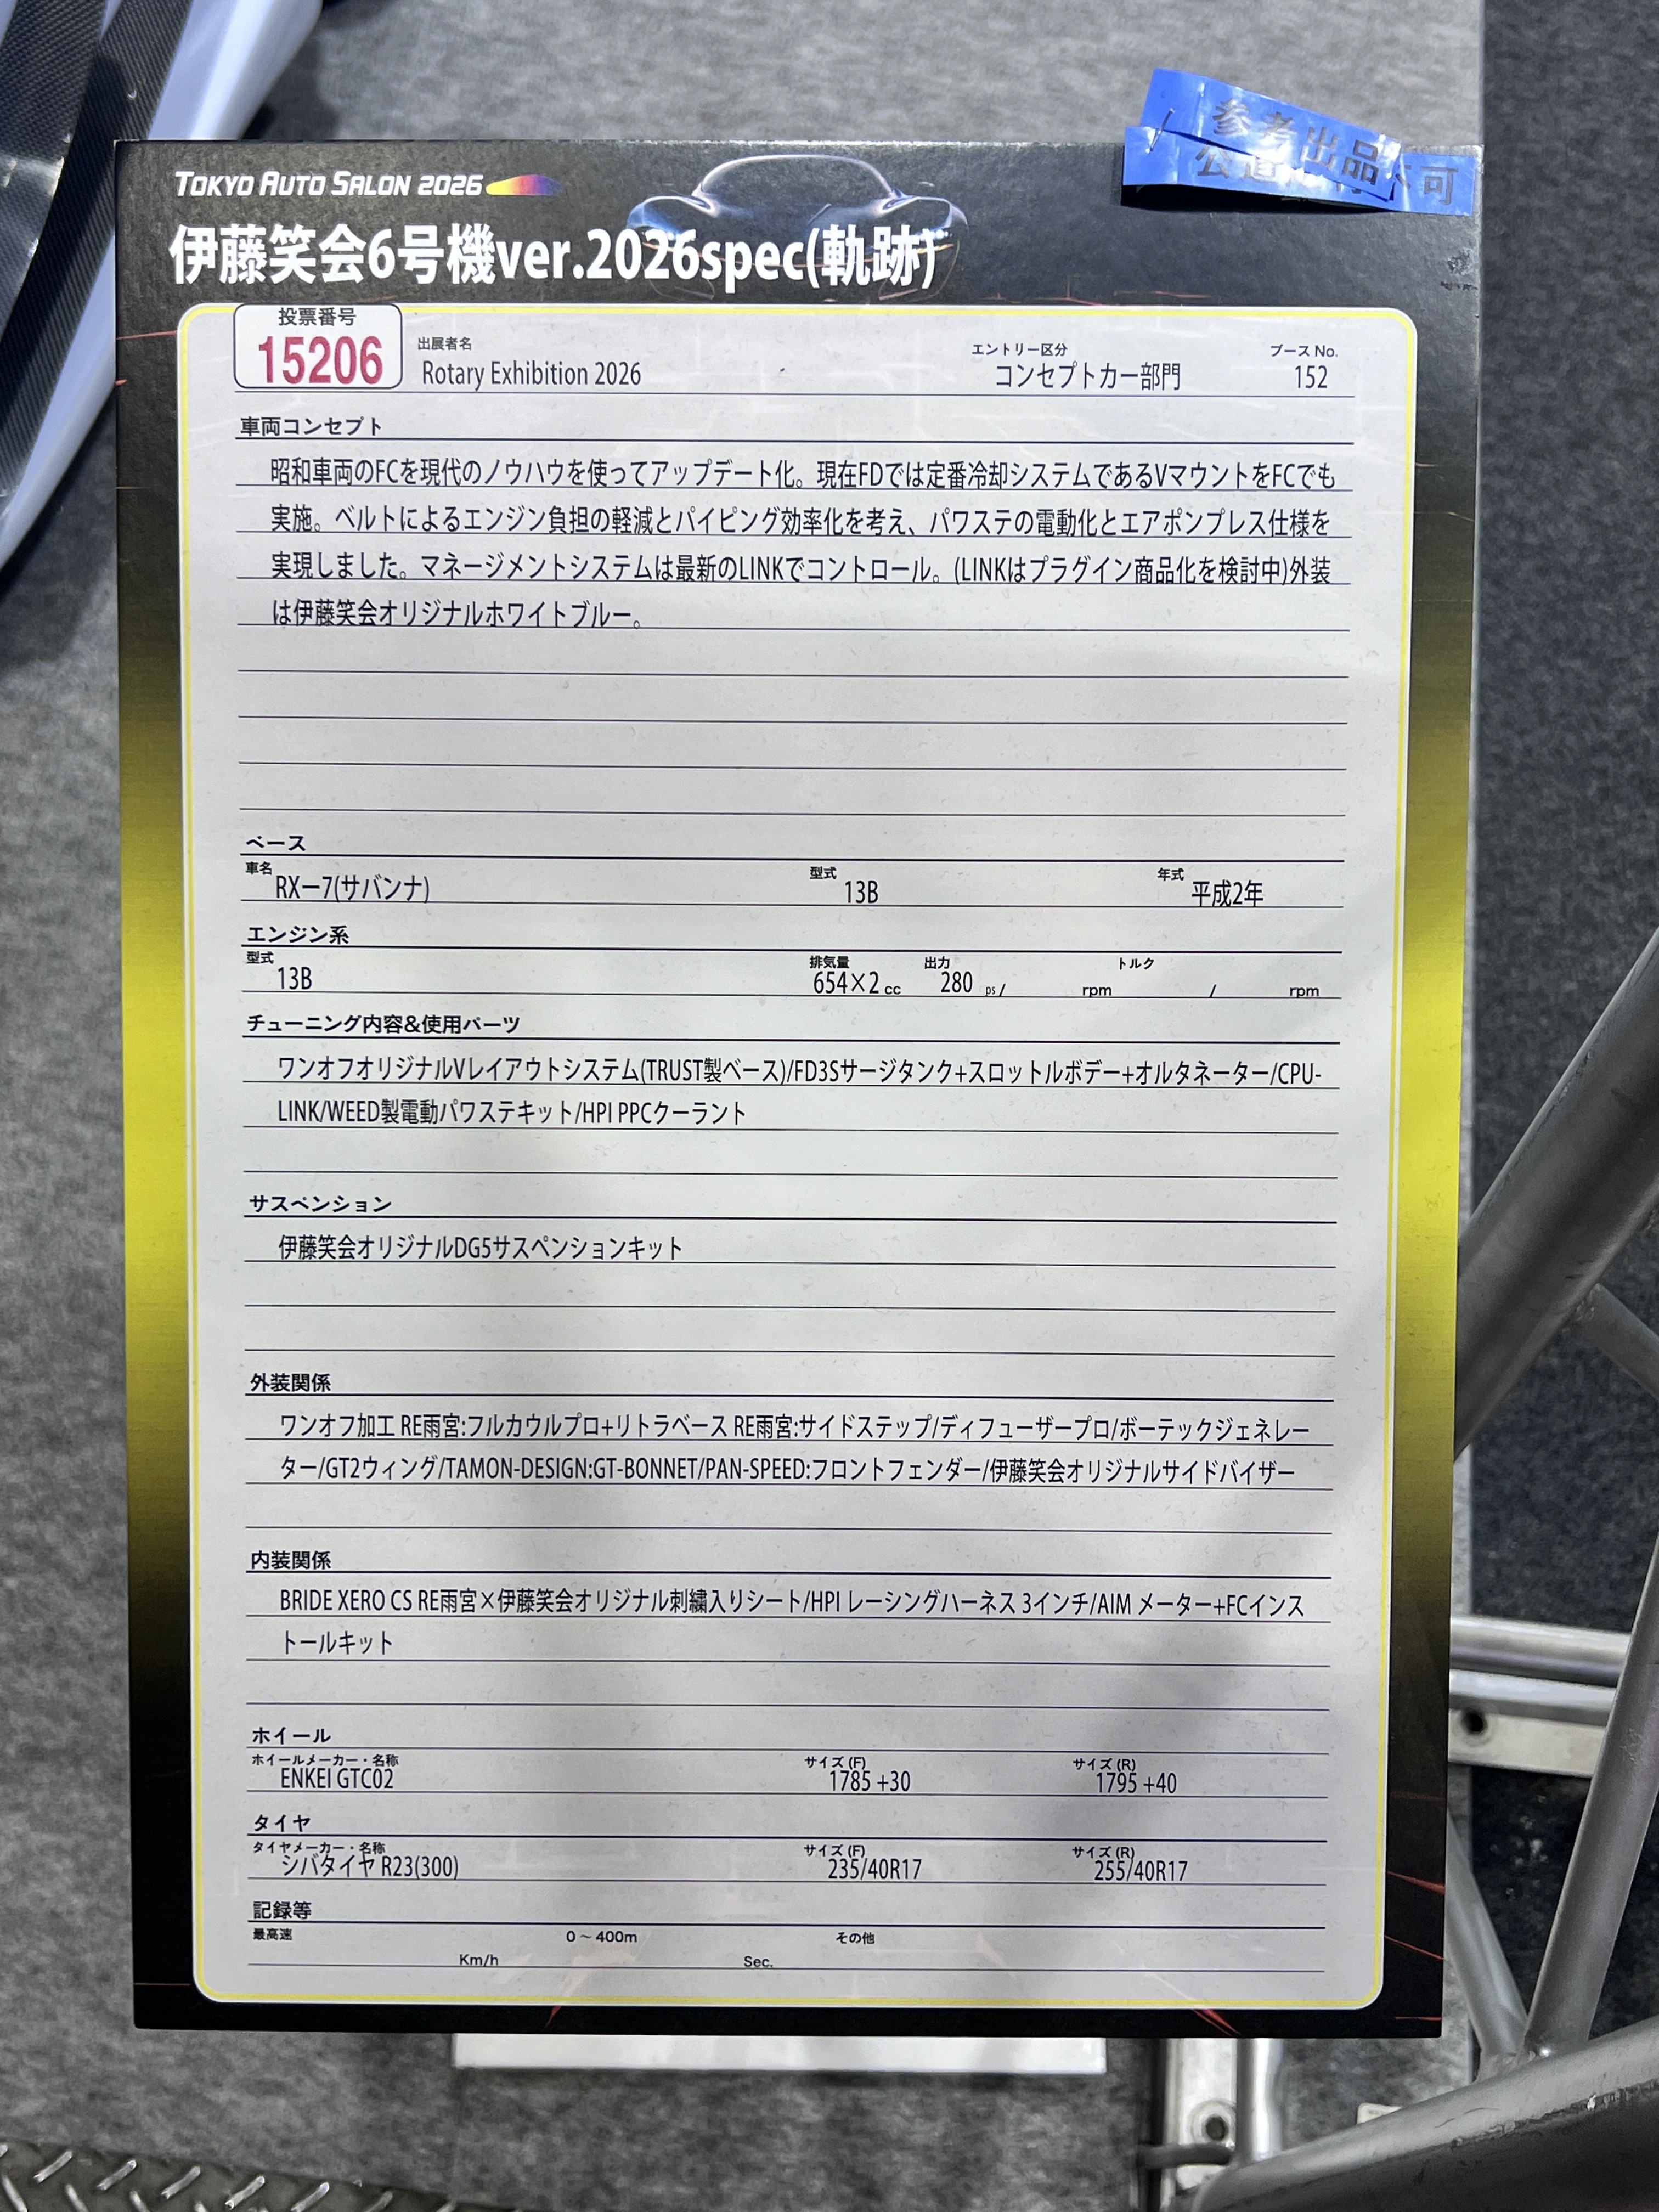 参考出品
公道 不可
TOKYO AUTO SALON 2026
伊藤笑会6号機ver.2026spec(軌跡)
投票番号
15206
出展者名
Rotary Exhibition 2026
エントリー区分
コンセプトカー部門
ブース No.
152
車両コンセプト
昭和車両のFCを現代のノウハウを使ってアップデート化。現在FDでは定番冷却システムであるVマウントをFCでも
実施。ベルトによるエンジン負担の軽減とパイピング効率化を考え、パワステの電動化とエアポンプレス仕様を
実現しました。マネージメントシステムは最新のLINKでコントロール。(LINKはプラグイン商品化を検討中)外装
は伊藤笑会オリジナルホワイトブルー。
ベース
車名 RXー7(サバンナ) 型式 13B 年式 平成2年
エンジン系
型式 13B 排気量 654×2 cc 出力 280 ps / rpm トルク / rpm
チューニング内容&使用パーツ
ワンオフオリジナルVレイアウトシステム(TRUST製ベース)/FD3Sサージタンク+スロットルボデー+オルタネーター/CPU-
LINK/WEED製電動パワステキット/HPI PPCクーラント
サスペンション
伊藤笑会オリジナルDG5サスペンションキット
外装関係
ワンオフ加工 RE雨宮:フルカウルプロ+リトラベース RE雨宮:サイドステップ/ディフューザープロ/ボーテックジェネレー
ター/GT2ウィング/TAMON-DESIGN:GT-BONNET/PAN-SPEED:フロントフェンダー/伊藤笑会オリジナルサイドバイザー
内装関係
BRIDE XERO CS RE雨宮×伊藤笑会オリジナル刺繍入りシート/HPI レーシングハーネス 3インチ/AIM メーター+FCインス
トールキット
ホイール
ホイールメーカー・名称 ENKEI GTC02 サイズ (F) 1785 +30 サイズ (R) 1795 +40
タイヤ
タイヤメーカー・名称 シバタイヤ R23(300) サイズ (F) 235/40R17 サイズ (R) 255/40R17
記録等
最高速 Km/h 0～400m Sec. その他